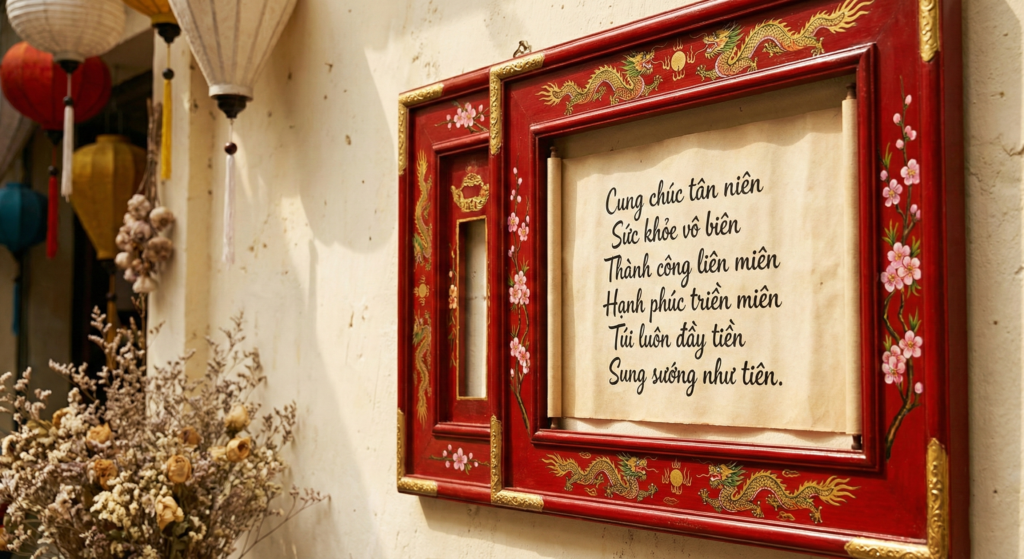 Cung chúc tân niên
Sức khỏe vô biên
Thành công liên miên
Hạnh phúc triền miên
Túi luôn đầy tiền
Sung sướng như tiên.